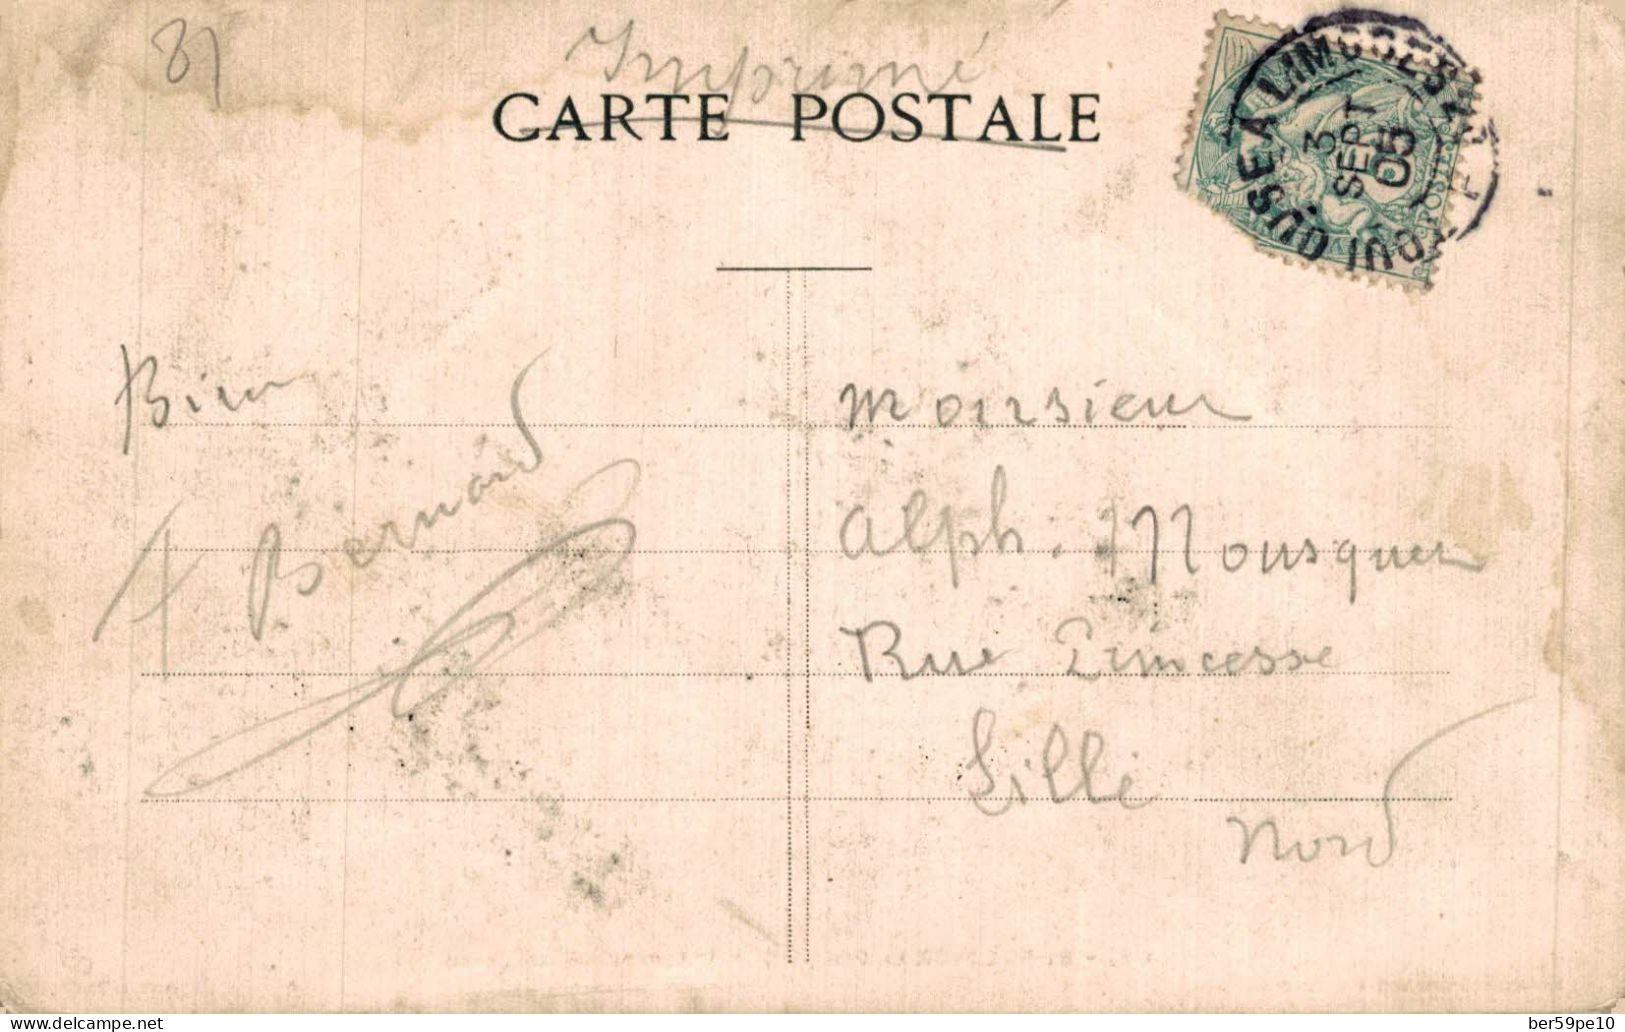 81
Imprimé
CARTE POSTALE
LIMOGES
3
SEPT
05
POSTES
Bien
Monsieur
A Bernard
Alph. Mousquer
Rue Princesse
Lille
Nord
www.delcampe.net
ber59pe10